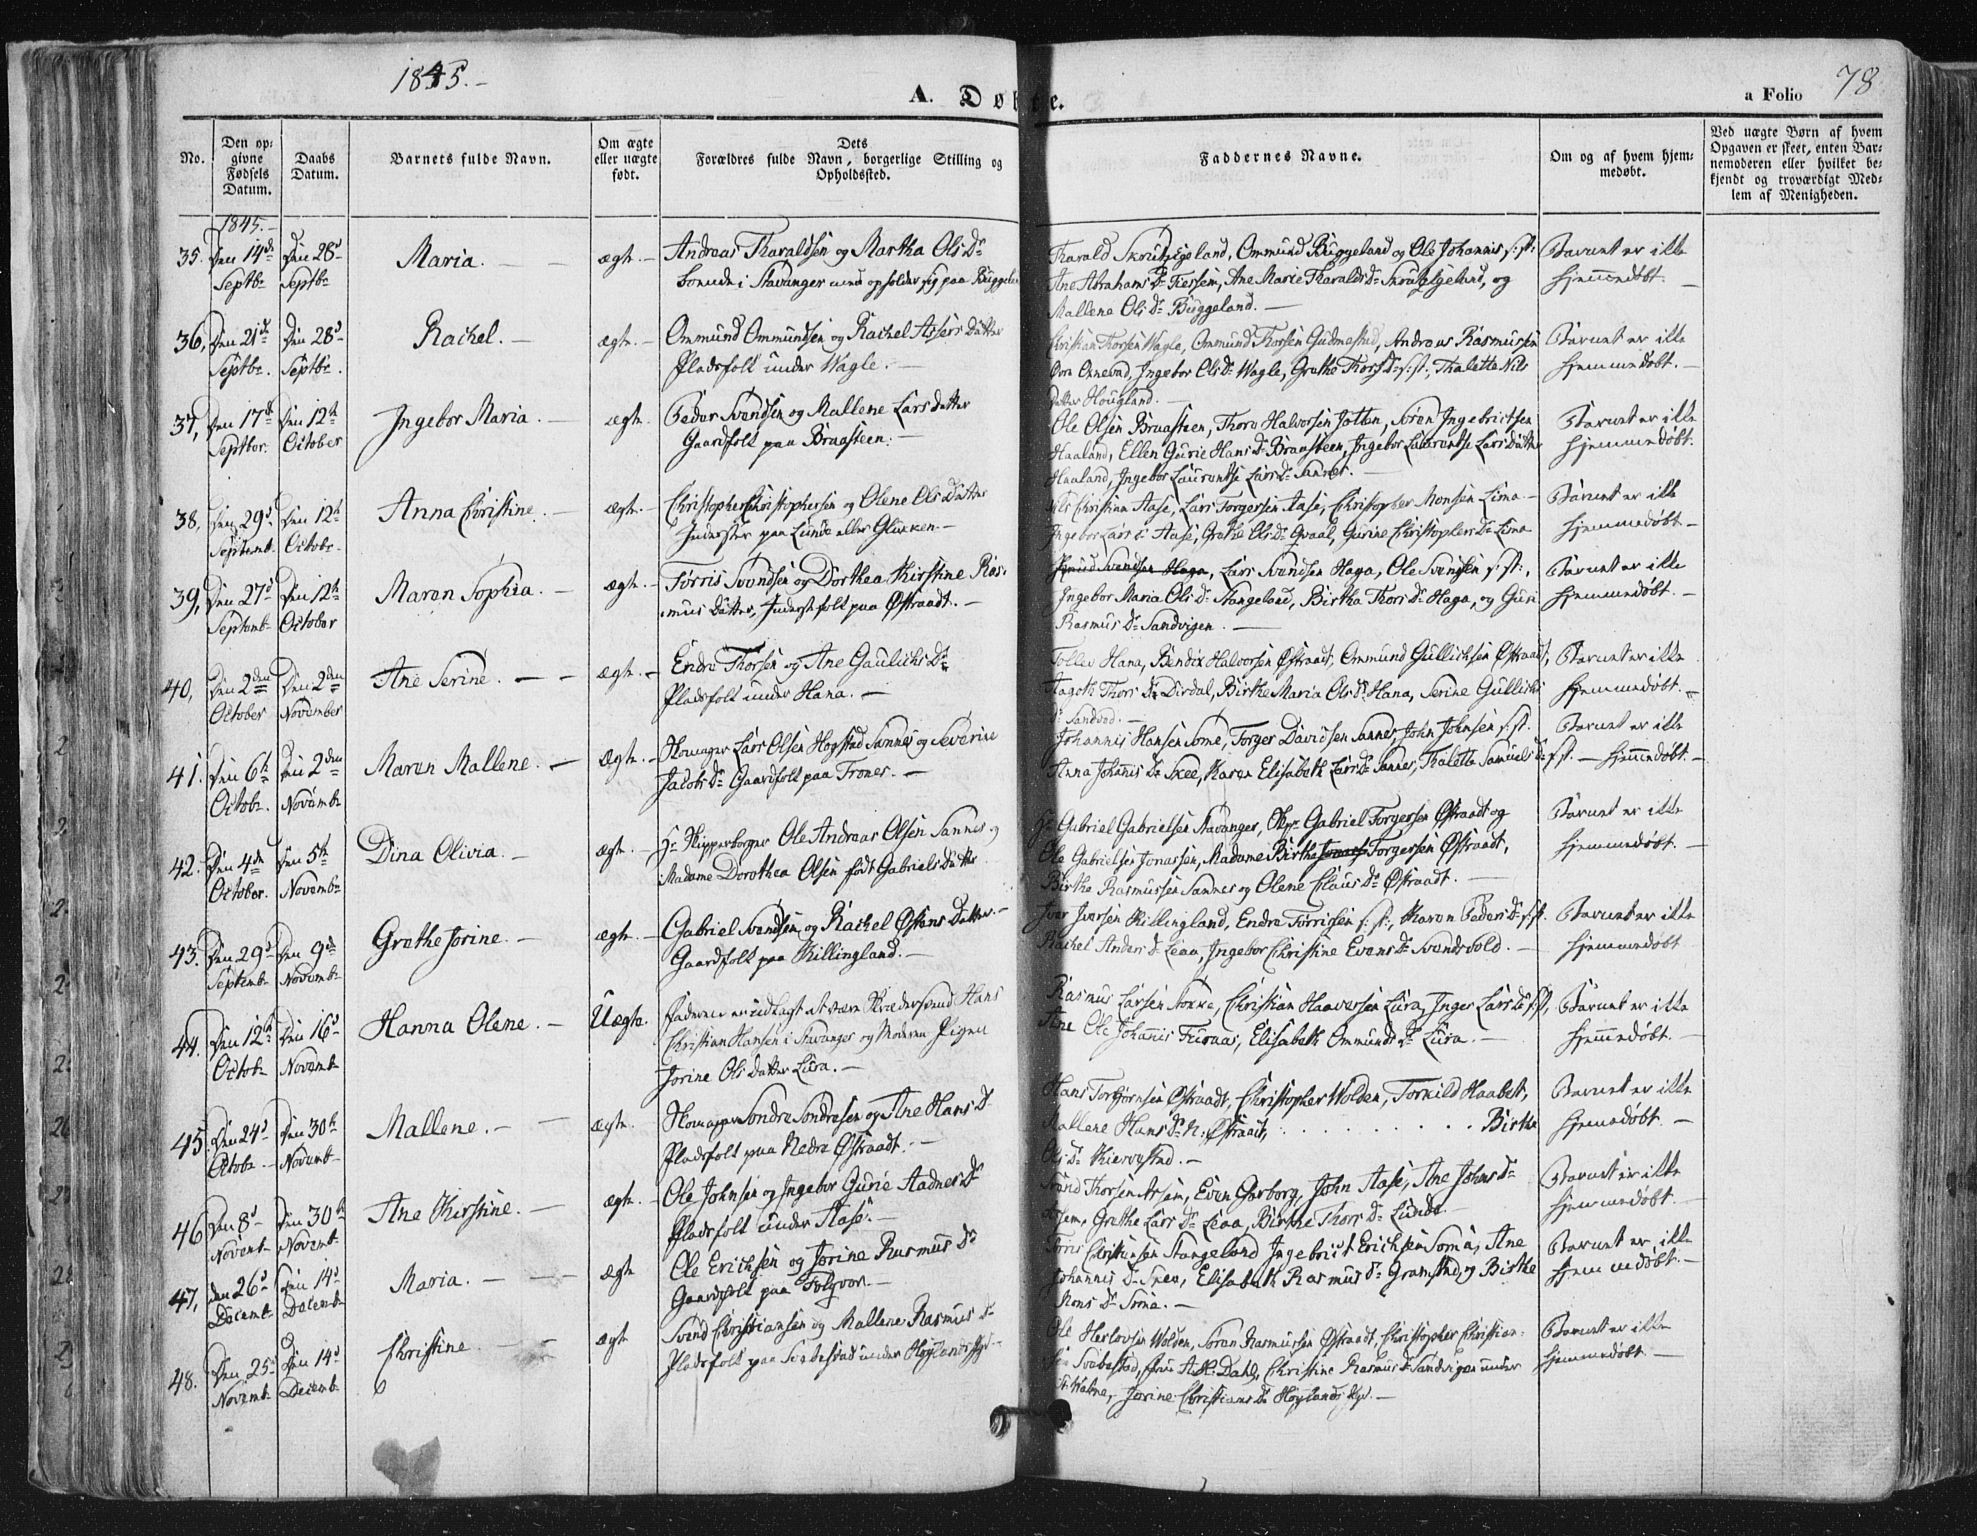 1845.-
A. Døbte.
a Folio 78
No.
Den op-
givne
Fødsels
Datum.
Daabs
Datum.
Barnets fulde Navn.
Om ægte
eller uægte
født.
Dets
Forældres fulde Navn, borgerlige Stilling og
Opholdssted.
Faddernes Navne.
Om og af hvem hjem-
medøbt.
Ved uægte Børn af hvem
Opgaven er skeet, enten Bar-
nemoderen eller hvilket be-
kjendt og troværdigt Med-
lem af Menigheden.
1845.-
35. Den 14de Septbr Den 28de Septbr Maria. ægte.
Andreas Tharaldsen og Martha Ols Dr
boende i Stavanger men opholder sig paa Byggeland
Tharald Skrudsigeland, Ommund Byggeland og Ole Johannis s:st:
Ane Abrahams Dr Tiessem, Ane Marie Tharalds Dr og
Mallene Ols Dr Byggeland.
Barnet er ikke
hjemmedøbt.
36, Den 21de Septbr. Den 28de Septbr. Rachel. ægte.
Ommund Ommundsen og Rachel Assers Datter
Pladsfolk under Wagle.
Christian Thorsen Wagle, Ommund Thorsen Gudmestad, Andreas Rasmusen
Ingebor Ols Dr Wagle, Grethe Thors Dr s:st:, Thalette Nils
Datter Hougland.
Barnet er ikke
hjemmedøbt.
37, Den 17de Septbr. Den 12te October Ingebor Maria. ægte.
Peder Svendsen og Mallene Lars Datter
Gaardfolk paa Braasteen.
Ole Olsen Braasteen, Thore Halvorsen Jotten, Søren Ingebrictsen
Haaland, Ellen Gurie Hans Dr Braasteen, Ingebor Laurentse Lars Datter
Haaland, Ingebor Laurentse Lars Dr Sannes.
Barnet er ikke
hjemmedøbt.
38, Den 29de Septemb. Den 12te Octobr. Anna Christine. ægte.
Christopher Christophersen og Olene Ols Datter
Inderster paa Lunde eller Gluxen.
Nils Christian Aase, Lars Torgersen Aase, Christopher Monsen Lima
Ingebor Lars Dr Aase, Grethe Ols Dr Graal, Gurine Christophers Dr Lima
Barnet er ikke
hjemmedøbt.
39, Den 27de Septemb. Den 12te October Maren Sophia. ægte.
Tørris Svendsen og Dorthea Kirstine Ras-
mus Datter, Inderstfolk paa Østraadt.
Knud Svendsen Haga, Lars Svendsen Haga, Ole Svendsen s:st:,
Ingebor Maria Ols Dr Stangeland, Birtha Thors Dr Haga, og Guri
Rasmus Dr Sandvigen.
Barnet er ikke
hjemmedøbt.
40, Den 2den October Den 2den November Ane Serine. ægte.
Endre Thorsen og Ane Gaulichs Dr
Pladsfolk under Hana.
Tollev Hana, Bendix Halvorsen Østraadt, Ommund Gullichsen Østraadt,
Aageth Thors Dr Dirdal, Birthe Maria Ols Dr Hana, Serine Gullichs
Dr Sandved.
Barnet er ikke
hjemmedøbt.
41. Den 6te Octobr. Den 2den Novembr Maren Mallene. ægte.
Skomager Lars Olsen Hogstad Sannes og Severine
Jacobs Dr Gaardfolk paa Trones.
Johannis Hansen Some, Torger Davidsen Sannes, John Johnsen s:st.
Anna Johannis Dr Skee, Karen Elisabeth Lars Dr Sannes, Thalette Samuels Dr s:st.
Barnet er ikke
hjemmedøbt.
42. Den 4de October. Den 5te Novembr Dina Olivia. ægte.
Hr Skipperborger Ole Andreas Olsen Sannes og
Madame Dorothea Olsen født Gabriels Datter
Hr Gabriel Gabrielsen Stavanger, Skpr Gabriel Torgersen Østraadt og
Ole Gabrielsen Jonassen, Madame Birthe Jonas Torgersen Østraadt,
Birthe Rasmussen Sannes og Olene Claus Dr Østraadt.
Barnet er ikke
hjemmedøbt.
43. Den 29de Septemb. Den 9de Novembr Grethe Jorine. ægte.
Gabriel Svendsen og Rachel Østens Datter.
Gaardfolk paa Killingland.
Iver Iversen Killingland, Endre Tørrissen s:st:, Karen Peders Dr s:st.
Rachel Anders Dr Leaa, Ingebor Christine Evens Dr Svendsvold.
Barnet er ikke
hjemmedøbt
44. Den 12te Octob. Den 16de Novemb. Hanna Olene. Uægte.
Faderen er udlagt at være Skrædersvend Hans
Christian Hansen i Stavanger og Moderen Pigen
Jorine Ols Datter Lura.
Rasmus Larsen Stokke, Christian Haaversen Lura, Inger Lars Dr s:st,
Ane Ole Johannis Furaas, Elisabeth Ommunds Dr Lura.
Barnet er ikke
hjemmedøbt.
45. Den 24de Octobr. Den 30te Novemb. Mallene. ægte.
Skomager Sondre Sondresen og Ane Hans Dr
Pladsfolk paa Nedre Østraadt.
Hans Torbjørnsen Østraadt, Christopher Wolden, Torkild Haabet,
Mallene Hans Dr N: Østraadt, . . . . . . . . Birthe
Ols Dr Kiervestad.
Barnet er ikke
hjemmedøbt.
46 Den 8de Novemb. Den 30te Novemb. Ane Kirstine. ægte.
Ole Johnsen og Ingebor Gurie Aadnes Dr
Pladsfolk under Aase.
Svend Thorsen Assem, Even Garborg, John Aase, Ane Johns Dr
Assem, Grethe Lars Dr Leaa, Birthe Thors Dr Lunde.
Barnet er ikke
hjemmedøbt.
47, Den 26de Decemb. Den 14de Decemb. Maria. ægte
Ole Erichsen og Jorine Rasmus Dr
Gaardfolk paa Folgvor.
Tørris Christensen Stangeland Ingebrict Erichsen Soma, Ane
Johannis Dr Skee, Elisabeth Rasmus Dr Gramstad og Birthe
Mons Dr Soma.
Barnet er ikke
hjemmedøbt.
48. Den 25de Novemb. Den 14de Decemb. Christine ægte
Svend Christiansen og Mallene Rasmus Dr
Pladsfolk paa Svebestad under Høylands
Ole Herlovsen Wolden, Søren Rasmussen Østraadt, Christopher Christian-
sen Svebestad, Dahl, Christine Rasmus Dr Sandvigen under
Jorine Christians Dr Høylands
Barnet er ikke
hjemmedøbt.